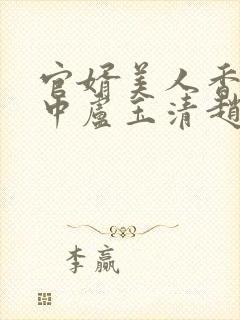 官婿美人香
中卢玉清趙
李赢